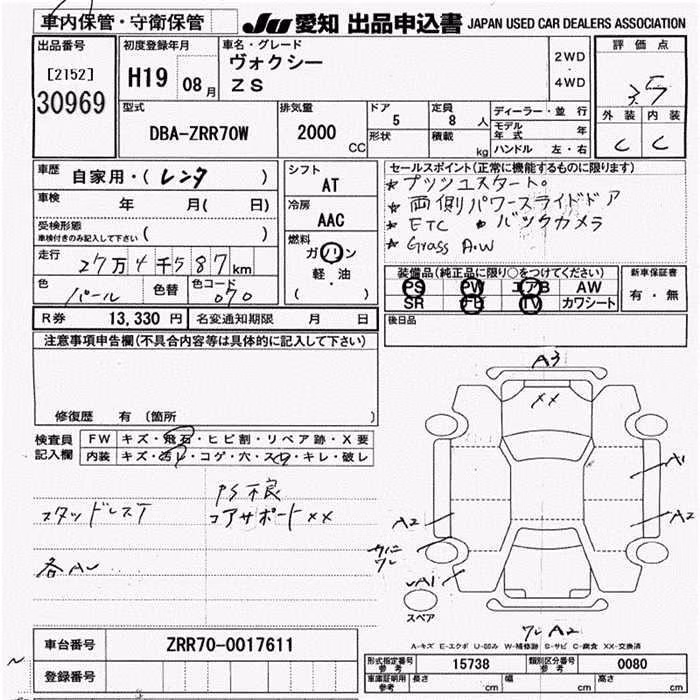 車内保管・守衛保管
JU 愛知 出品申込書 JAPAN USED CAR DEALERS ASSOCIATION
出品番号
[2152]
30969
初度登録年月
H19 08月
車名・グレード
ヴォクシー
ZS
2WD
・
4WD
評価点
3.5
外装 内装
C C
型式
DBA-ZRR70W
排気量
2000 CC
ドア
5
形状
定員
8 人
積載
kg
ディーラー・並行
モデル年式 年
ハンドル 左・右
車歴
自家用・( レンタ )
車検
年 月( 日)
受検形態
車検付きのみ記入して下さい ( )
走行
27万4千587km
色
パール
色替
色コード
070
シフト
AT
冷房
AAC
燃料
ガソリン
・
軽・油
( )
セールスポイント(正常に機能するものに限ります)
★ プッシュスタート。
★ 両側パワースライドドア
★ ETC ・バックカメラ
★ Grass A.W
装備品(純正品に限り○をつけてください)
PS PW エアB AW
SR ナビ TV カワシート
新車保証書
有・無
後日品
R券 13,330 円 名変通知期限 月 日
注意事項申告欄(不具合内容等は具体的に記入して下さい)
修復歴 有 (箇所 )
検査員
記入欄
FW キズ・飛石・ヒビ割・リペア跡・X要
内装 キズ・汚れ・コゲ・穴・スレ・キレ・破レ
PS不良
スタッドレスT コアサポートxx
各AU
A3
xx
A1
A2
A2
ワレ
A1
スペア
ワレ A2
A-キズ E-エクボ U-凹み W-補修跡 S-サビ C-腐食 XX-交換済
車台番号 ZRR70-0017611
登録番号
型式指定番号
参考
15738
類別区分番号
参考
0080
車庫証明用
参考
長さ cm 幅 cm 高さ cm